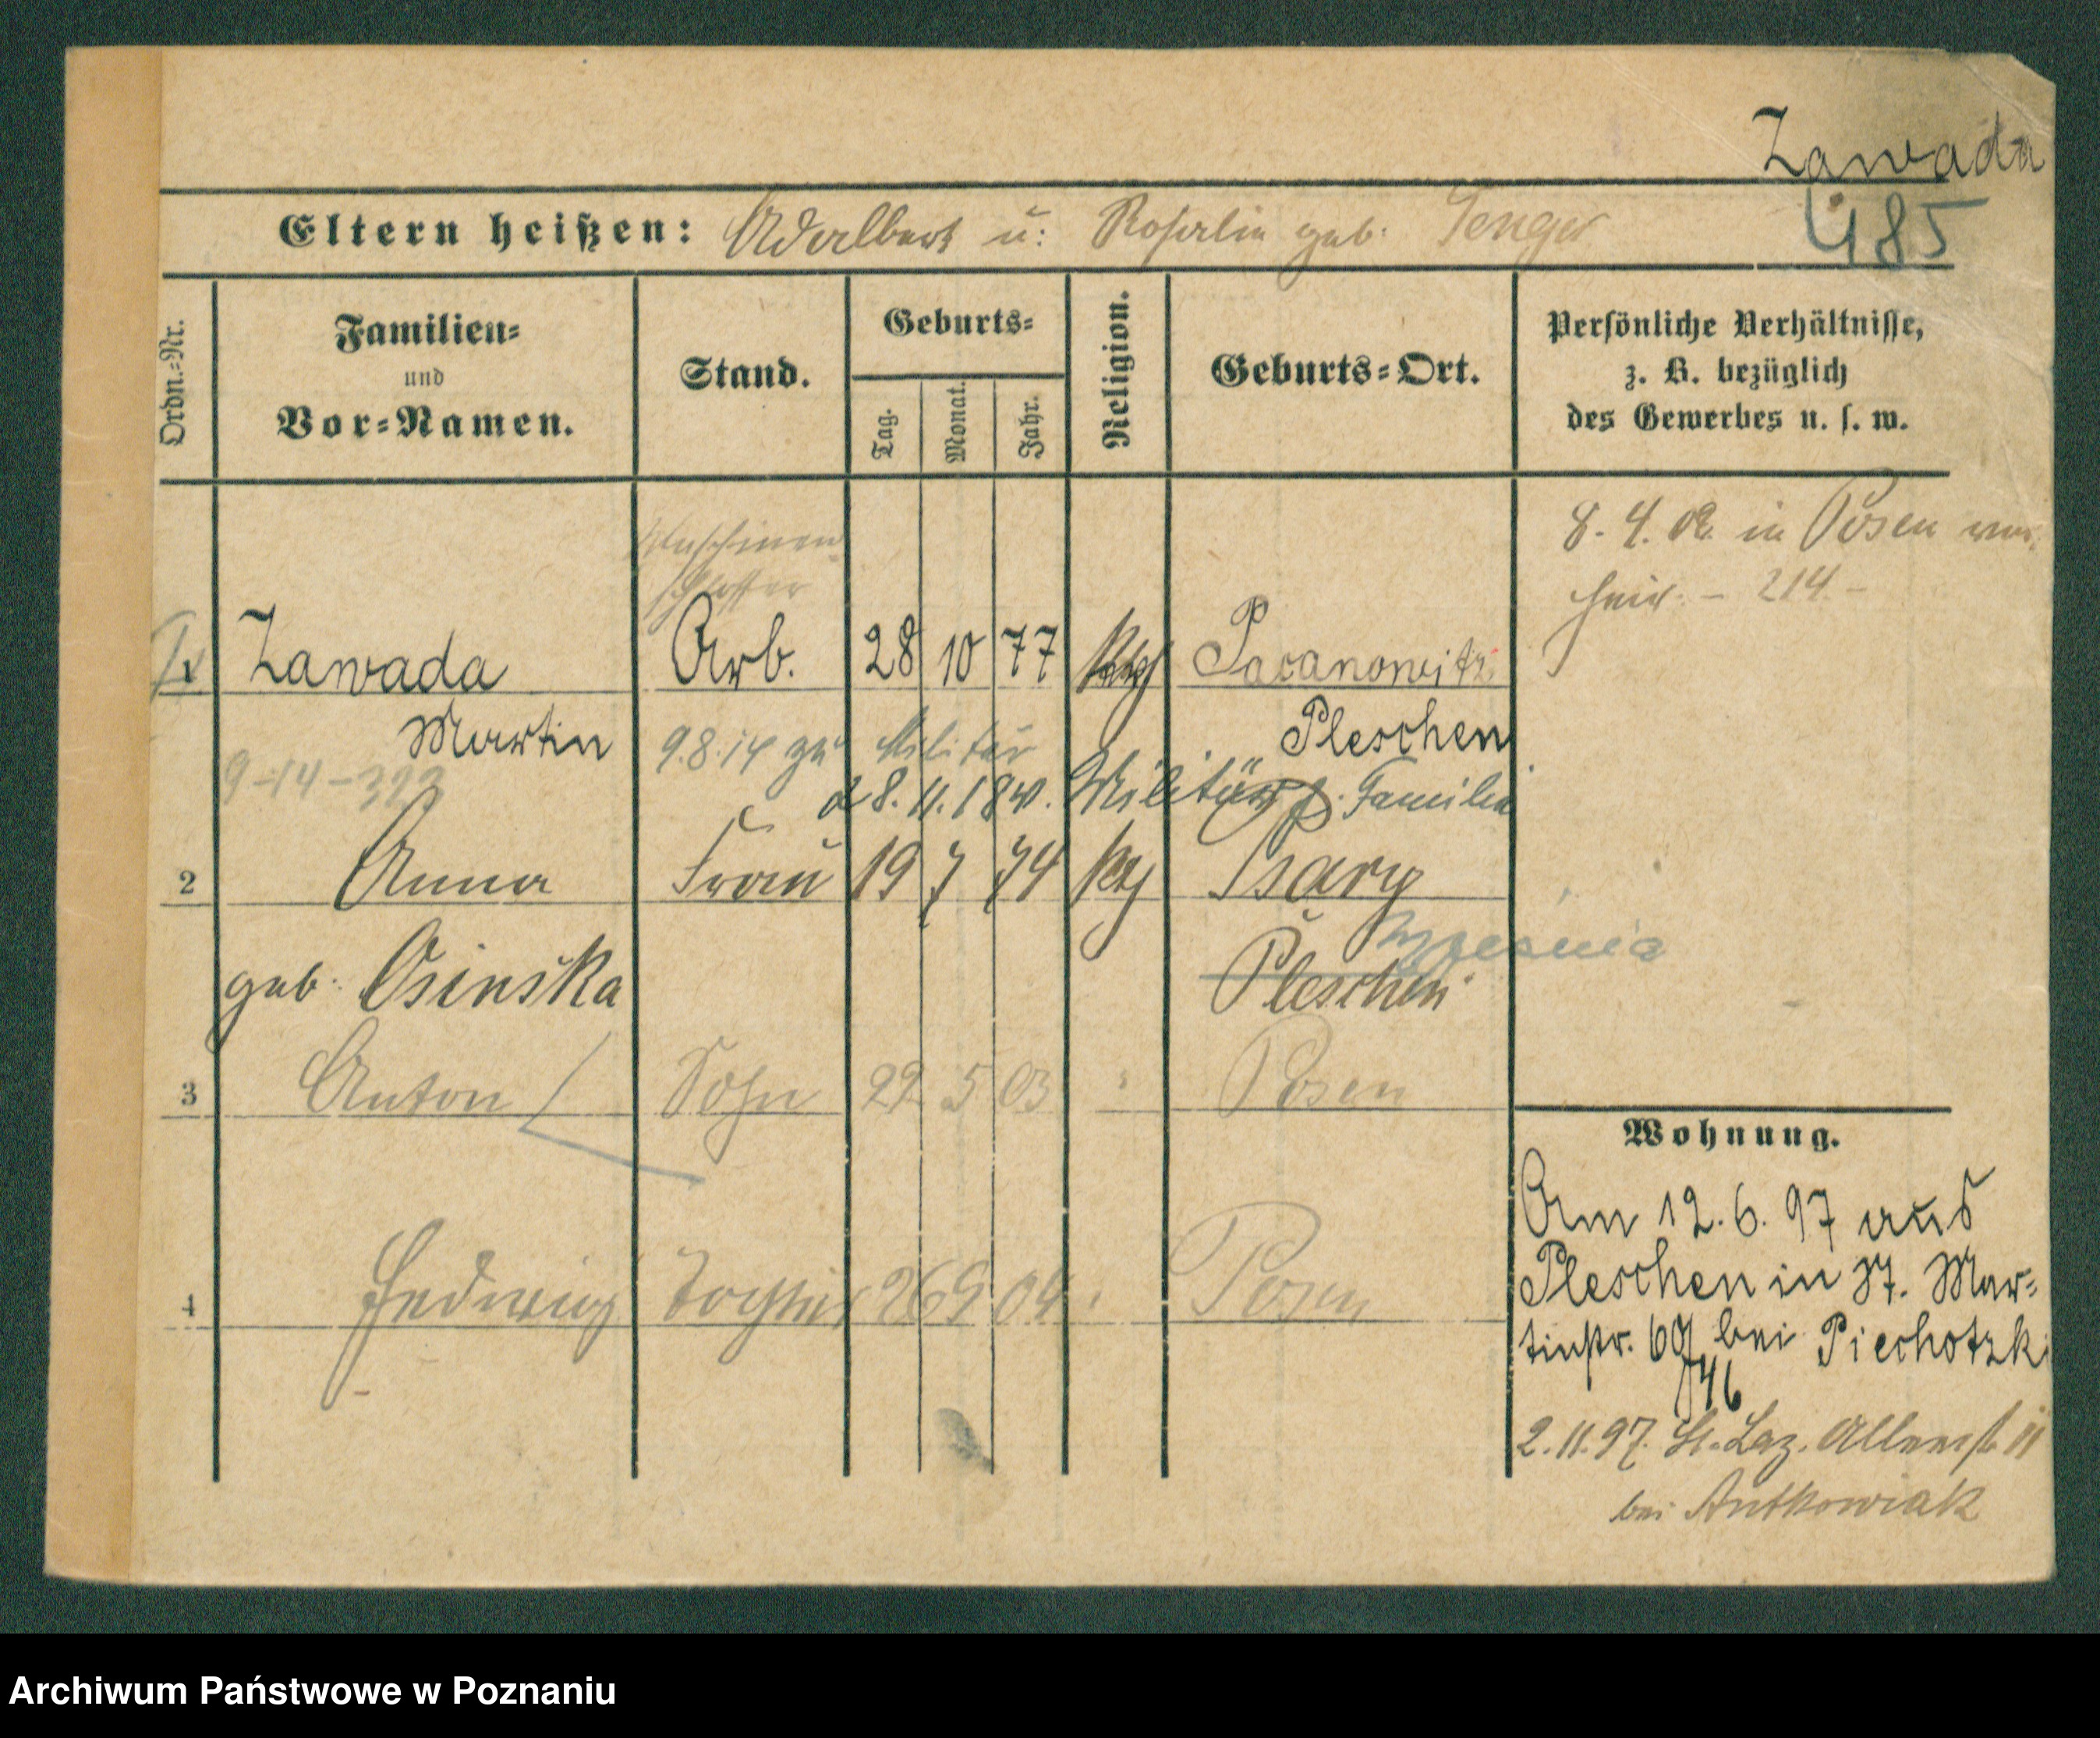 Zawada
485
Eltern heißen: Adalbert u: Rosalie geb. Tenger
Ordn.=Nr.
Familien=
und
Vor=Namen.
Stand.
Geburts=
Tag.
Monat.
Jahr.
Religion.
Geburts=Ort.
Persönliche Verhältnisse,
z. B. bezüglich
des Gewerbes u. s. w.
Maschinen
schlosser
8. 4. 02. in Posen ver
heir. - 214 -
1 Zawada Arb. 28 10 77 kath Pacanowitz
Martin Pleschen
9.8.14 zu Militär
9-14-393
28.11.18 v. Militär z. Familie
2 Anna Frau 19 7 74 kth Psary
Wrzesnia
geb. Osinska Pleschen
3 Anton Sohn 22 5 03 " Posen
4 Hedwig Tochter 26 9 04 " Posen
Wohnung.
Am 12.6.97 aus
Pleschen in St. Mar=
tinstr. 60 bei Piechotzki
746
2.11.97. St. Laz. 11
bei Antkowiak
Archiwum Państwowe w Poznaniu